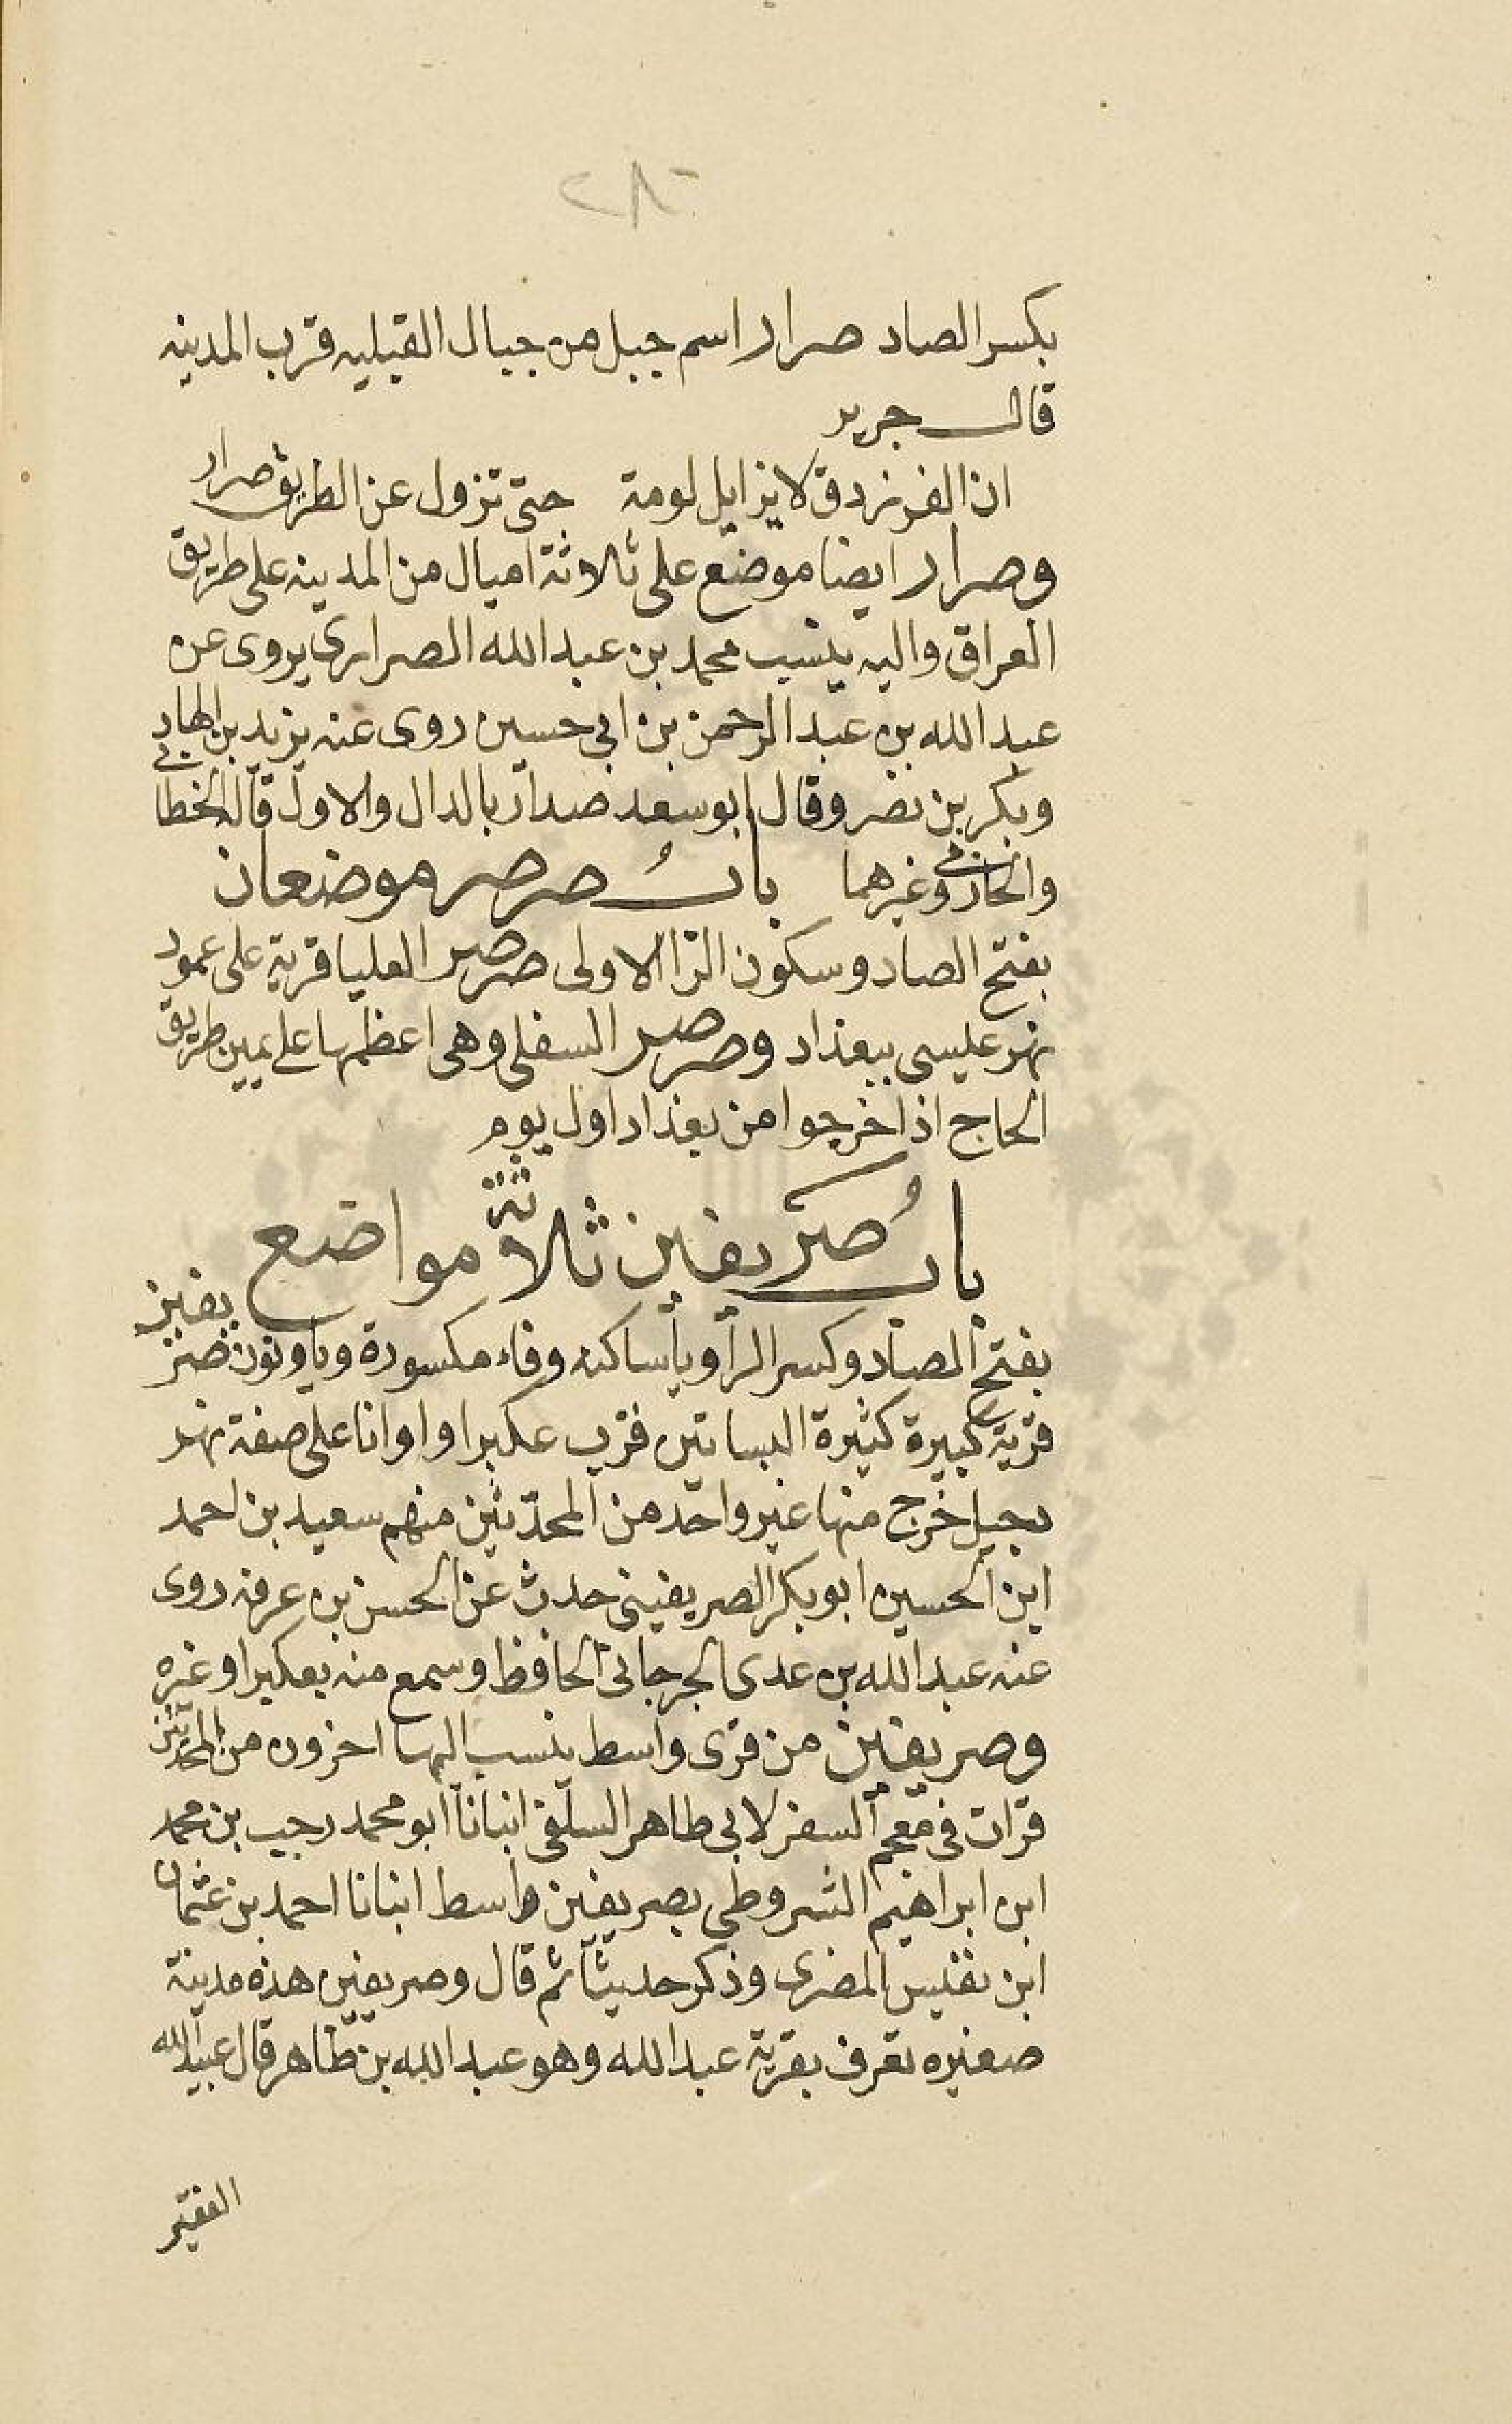 ٢٨٠
بكسر الصاد صرار اسم جبل من جبال القبليه قرب المدينه
قال جرير
ان الفرزدق لا يزايل لومة حتى تزول عن الطريق صرار
وصرار ايضا موضع على ثلاثة اميال من المدينه على طريق
العراق واليه ينسب محمد بن عبد الله الصرارى يروى عن
عبد الله بن عبد الرحمن بن ابى حسين روى عنه يزيد بن الهاد
وبكر بن نضر وقال ابو سعد صداد بالدال والاول قاله الخطابى
والحازمى وغيرهما باب صرصر موضعان
بفتح الصاد وسكون الرا الاولى صرصر العليا قرية على عمود
نهر عيسى ببغداد وصرصر السفلى وهى اعظمها على يمين طريق
الحاج اذا خرجوا من بغداد اول يوم
باب صريفين ثلاثة مواضع
بفتح الصاد وكسر الرا ويا ساكنه وفاء مكسورة ويا ونون صريفين
قرية كبيرة كثيرة البساتين قرب عكبرا واوانا على ضفة نهر
دجيل خرج منها غير واحد من المحدّثين منهم سعيد بن احمد
ابن الحسين ابو بكر الصريفينى حدث عن الحسن بن عرفه روى
عنه عبد الله بن عدى الجرجانى الحافظ وسمع منه بعكبرا وغيره
وصريفين من قرى واسط ينسب اليها اخرون من المحدثين
قرات فى معجم السفر لابى طاهر السلفى انبانا ابو محمد رجب بن محمد
ابن ابراهيم الشروطى بصريفين واسط انبانا احمد بن عثمان
ابن نفيس المضرى وذكر حديثا ثم قال وصريفين هذه مدينة
صغيره تعرف بقرية عبد الله وهو عبد الله بن طاهر قال عبيد الله
الفقير